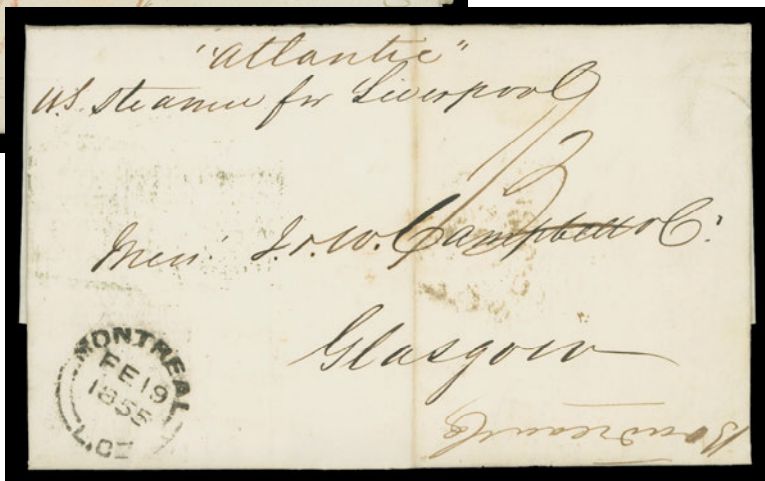 "Atlantic"
U.S. Steamer for Liverpool
1/3
Messrs. J. & W. Campbell & Co.
Glasgow
MONTREAL
FE 19
1855
L.C.